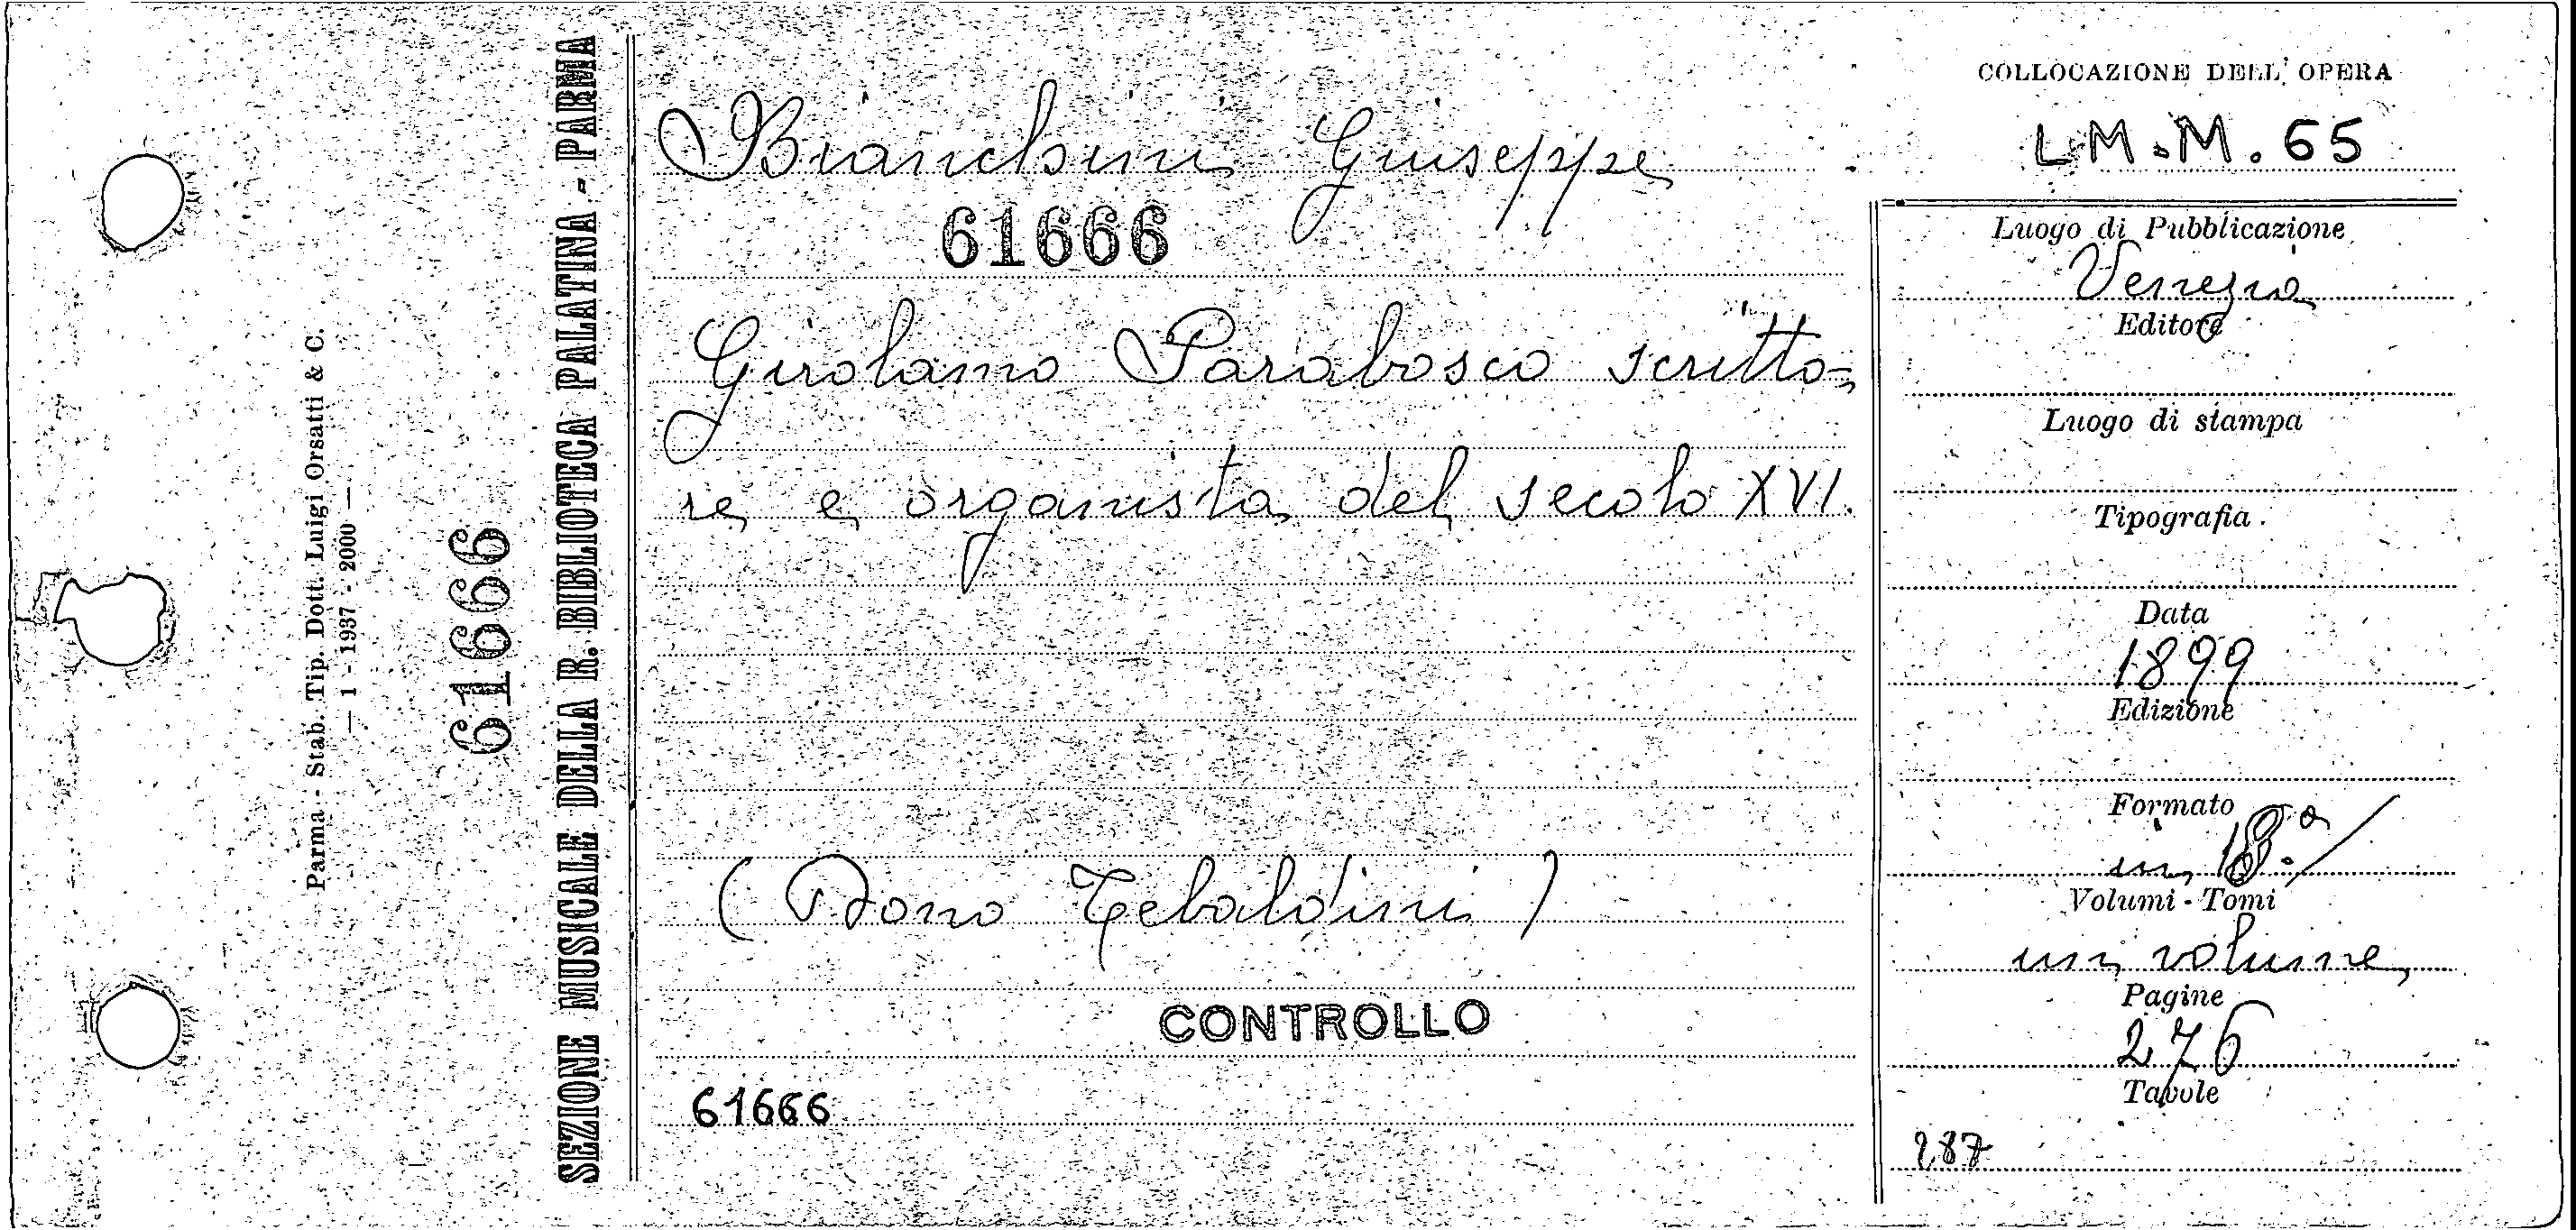 Parma - Stab. Tip. Dott. Luigi Orsatti & C.
— 1 - 1937 - 2000 —
61666
SEZIONE MUSICALE DELLA R. BIBLIOTECA PALATINA - PARMA
Bianchini Giuseppe
61666
Girolamo Parabosco scritto-
re e organista del secolo XVI.
(Dono Tebaldini)
CONTROLLO
61666
COLLOCAZIONE DELL' OPERA
L.M.M. 65
Luogo di Pubblicazione
Venezia
Editore
Luogo di stampa
Tipografia
Data
1899
Edizione
Formato
in 18.º
Volumi - Tomi
un volume
Pagine
276
Tavole